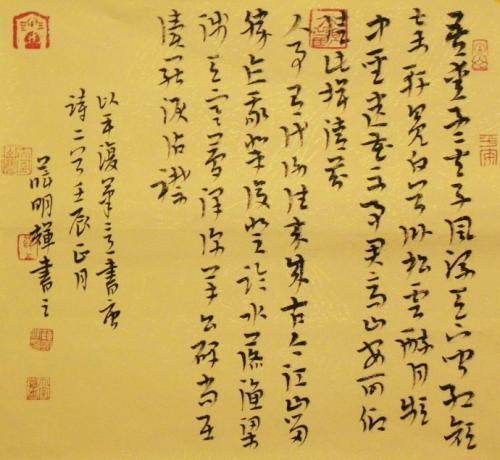 吾愛孟夫子風流天下聞紅顏
棄軒冕白首卧松雲醉月頻
中聖迷花不事君高山安可仰
徒此揖清芬
人事有代謝往來成古今江山留
勝迹我輩復登臨水落漁梁
淺天寒夢澤深羊公碑尚在
讀罷淚沾襟
以平復筆意書唐
詩二首壬辰正月
明輝書之